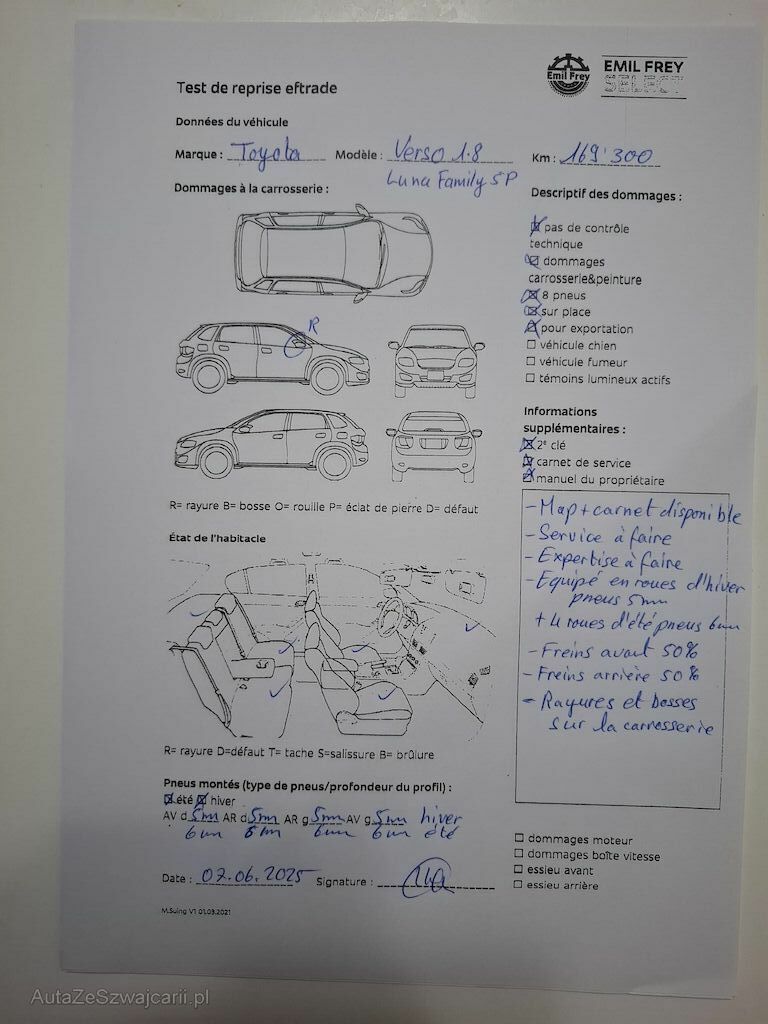 Emil Frey
EMIL FREY
SELECT
Test de reprise eftrade
Données du véhicule
Marque : Toyota Modèle : Verso 1.8 Km : 169'300
Luna Family 5P
Dommages à la carrosserie :
Descriptif des dommages :
pas de contrôle
technique
dommages
carrosserie&peinture
8 pneus
sur place
pour exportation
véhicule chien
véhicule fumeur
témoins lumineux actifs
R
Informations
supplémentaires :
2e clé
carnet de service
manuel du propriétaire
R= rayure B= bosse O= rouille P= éclat de pierre D= défaut
État de l'habitacle
- Map + carnet disponible
- Service à faire
- Expertise à faire
- Equipé en roues d'hiver
pneus 5mm
+ 4 roues d'été pneus 6mm
- Freins avant 50%
- Freins arrière 50%
- Rayures et bosses
sur la carrosserie
R= rayure D=défaut T= tache S=salissure B= brûlure
Pneus montés (type de pneus/profondeur du profil) :
été hiver
AV d 5mm AR d 5mm AR g 5mm AV g 5mm hiver
6mm 6mm 6mm 6mm été
dommages moteur
dommages boîte vitesse
essieu avant
essieu arrière
Date : 02.06.2025 Signature :
M.Suing V1 01.03.2021
AutaZeSzwajcarii.pl